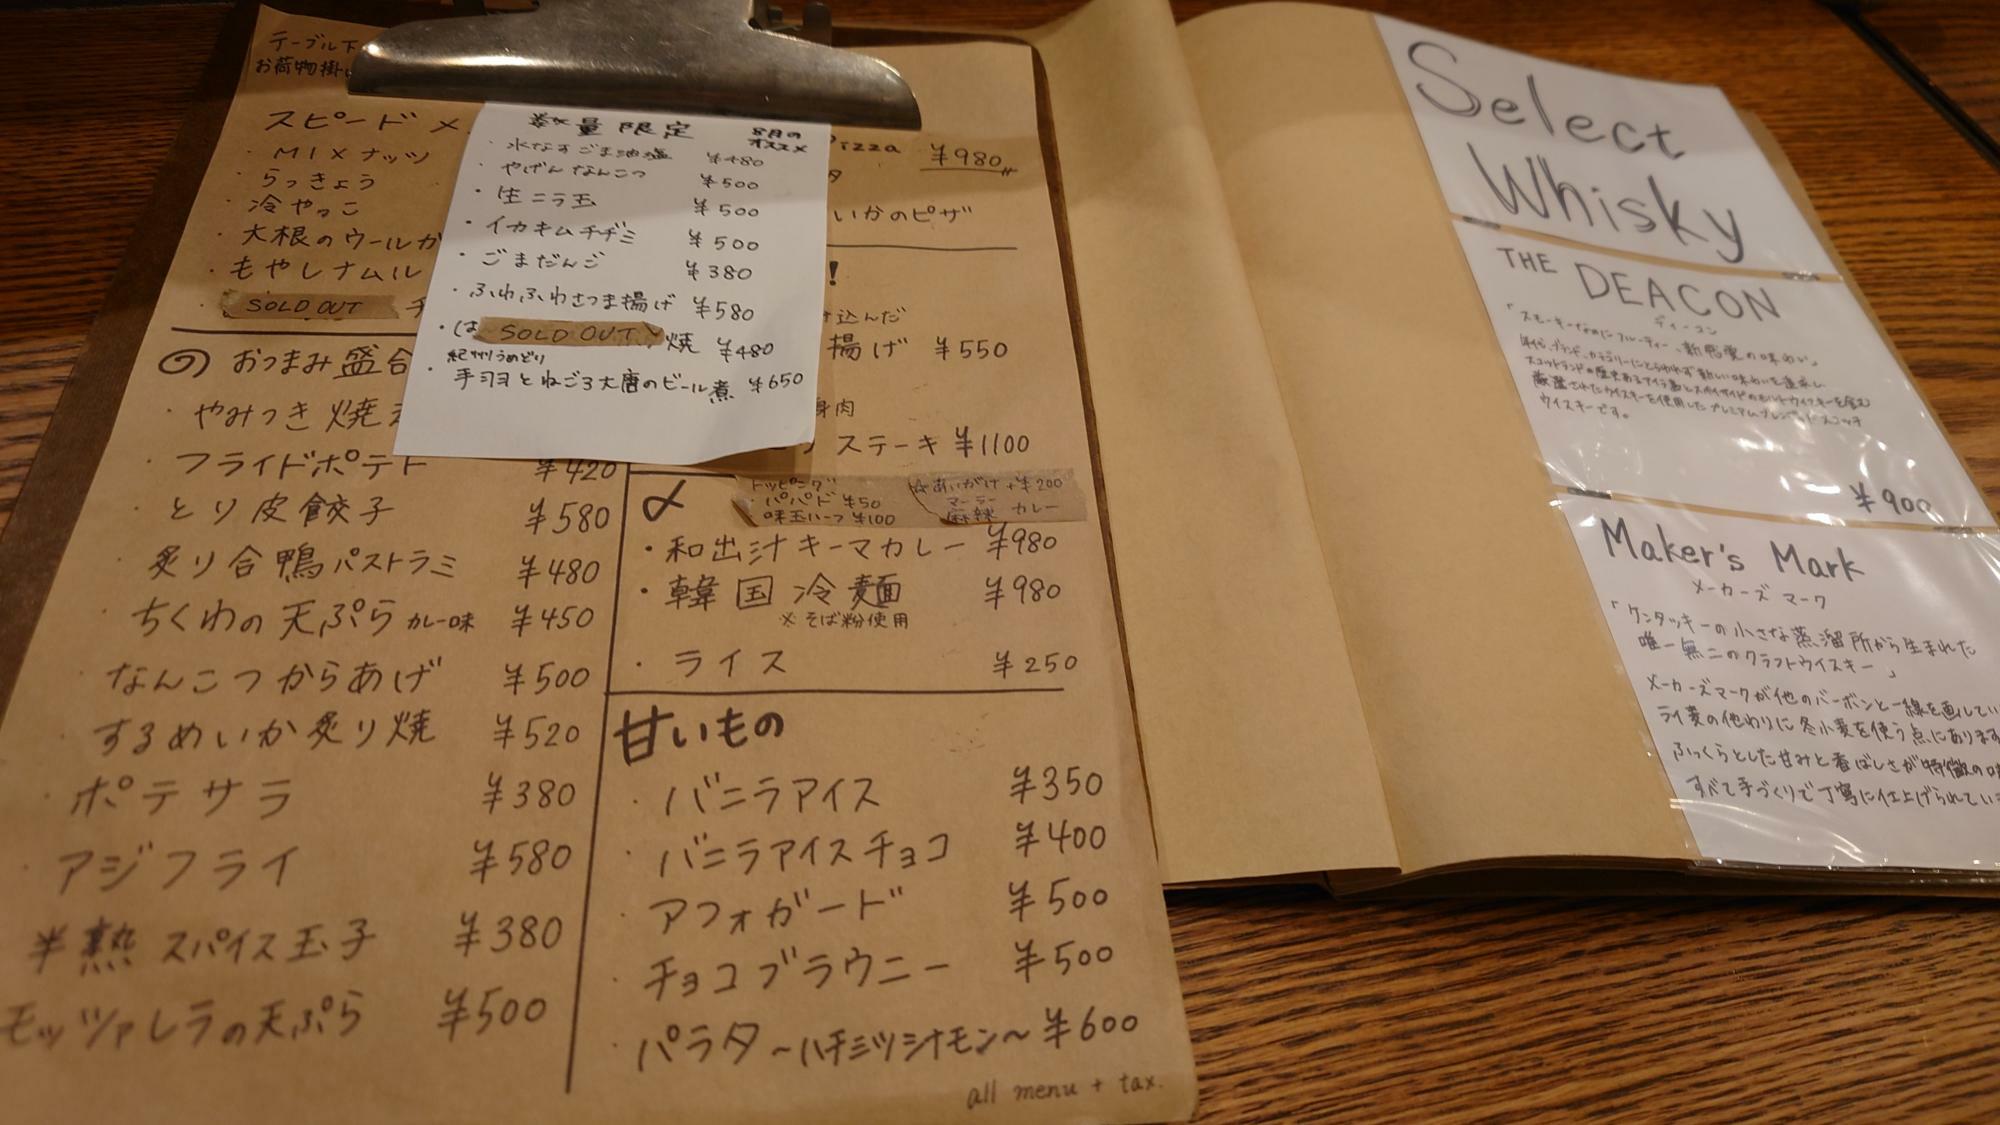 テーブル下
お荷物掛
スピード メ
・MIXナッツ
・らっきょう
・冷やっこ
・大根のウールか
・もやしナムル
・SOLD OUT チ
おつまみ盛合
・やみつき焼
・フライドポテト ¥420
・とり皮餃子 ¥580
・炙り合鴨パストラミ ¥480
・ちくわの天ぷらカレー味 ¥450
・なんこつからあげ ¥500
・するめいか炙り焼 ¥520
・ポテサラ ¥380
・アジフライ ¥580
半熟スパイス玉子 ¥380
モッツァレラの天ぷら ¥500
数量限定 8月のオススメ
・水なすごま油塩 ¥480
・やげんなんこつ ¥500
・生ニラ玉 ¥500
・イカキムチヂミ ¥500
・ごまだんご ¥380
・ふわふわさつま揚げ ¥580
・は SOLD OUT 焼 ¥480
紀州うめどり
・手羽ヨとねごろ大唐のビール煮 ¥650
Pizza ¥980
タ
いかのピザ
!
け込んだ
揚げ ¥550
身肉
ステーキ ¥1100
〆
トッピング
・パパド ¥50
味玉ハーフ ¥100
☆あいがけ+¥200
マーラー
麻辣 カレー
・和出汁キーマカレー ¥980
・韓国冷麺 ¥980
※そば粉使用
・ライス ¥250
甘いもの
・バニラアイス ¥350
・バニラアイスチョコ ¥400
・アフォガード ¥500
・チョコブラウニー ¥500
・パラタ〜ハチミツシナモン〜 ¥600
all menu + tax.
Select
Whisky
THE DEACON
ディーコン
「スモーキーなのにフルーティー、新感覚の味わい」
年代、ブランド、カテゴリーにとらわれず新しい味わいを追求し
スコットランドの歴史あるアイラ島とスペイサイドのモルトウイスキーを含む
厳選されたウイスキーを使用したプレミアムブレンデッドスコッチ
ウイスキーです。
¥900
Maker's Mark
メーカーズマーク
「ケンタッキーの小さな蒸溜所から生まれた
唯一無二のクラフトウイスキー」
メーカーズマークが他のバーボンと一線を画してい
ライ麦の代わりに冬小麦を使う点にあります
ふっくらとした甘みと香ばしさが特徴の
すべて手づくりで丁寧に仕上げられてい